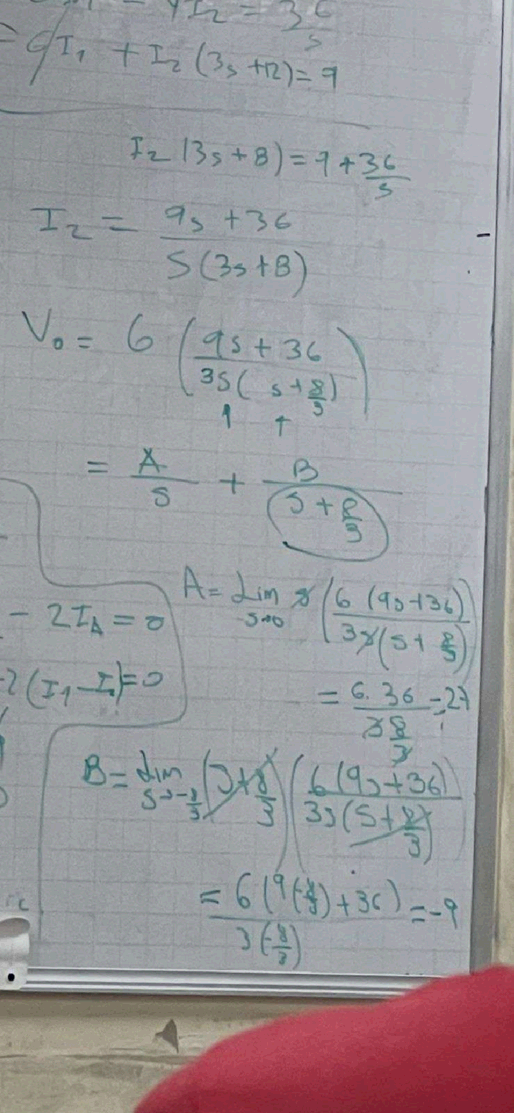 I₂ = 36/s
I₁ + I₂ (3s + 12) = 9
I₂ (3s + 8) = 9 + 36/s
I₂ = (9s + 36) / (s(3s + 8))
V₀ = 6 ( (9s + 36) / (3s(s + 8/3)) )
= A/s + B/(s + 8/3)
A = Lim s→0 s ( 6 (9s + 36) / (3s(s + 8/3)) )
= 6 . 36 / (3 8/3) = 27
- 2I_A = 0
-2 (I₁ - I)=0
B = Lim s→-8/3 (s + 8/3) ( 6 (9s + 36) / (3s(s + 8/3)) )
= 6 (9(-8/3) + 36) / (3(-8/3)) = -9